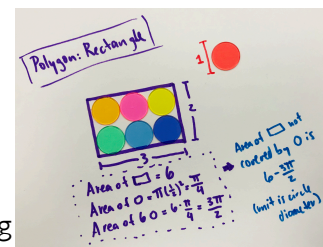 Polygon: Rectangle
1
2
3
Area of ▭ = 6
Area of O = π(½)² = π/4
Area of 6 O = 6 · π/4 = 3π/2
Area of ▭ not
covered by O is
6 - 3π/2
(unit is circle
diameter)
g